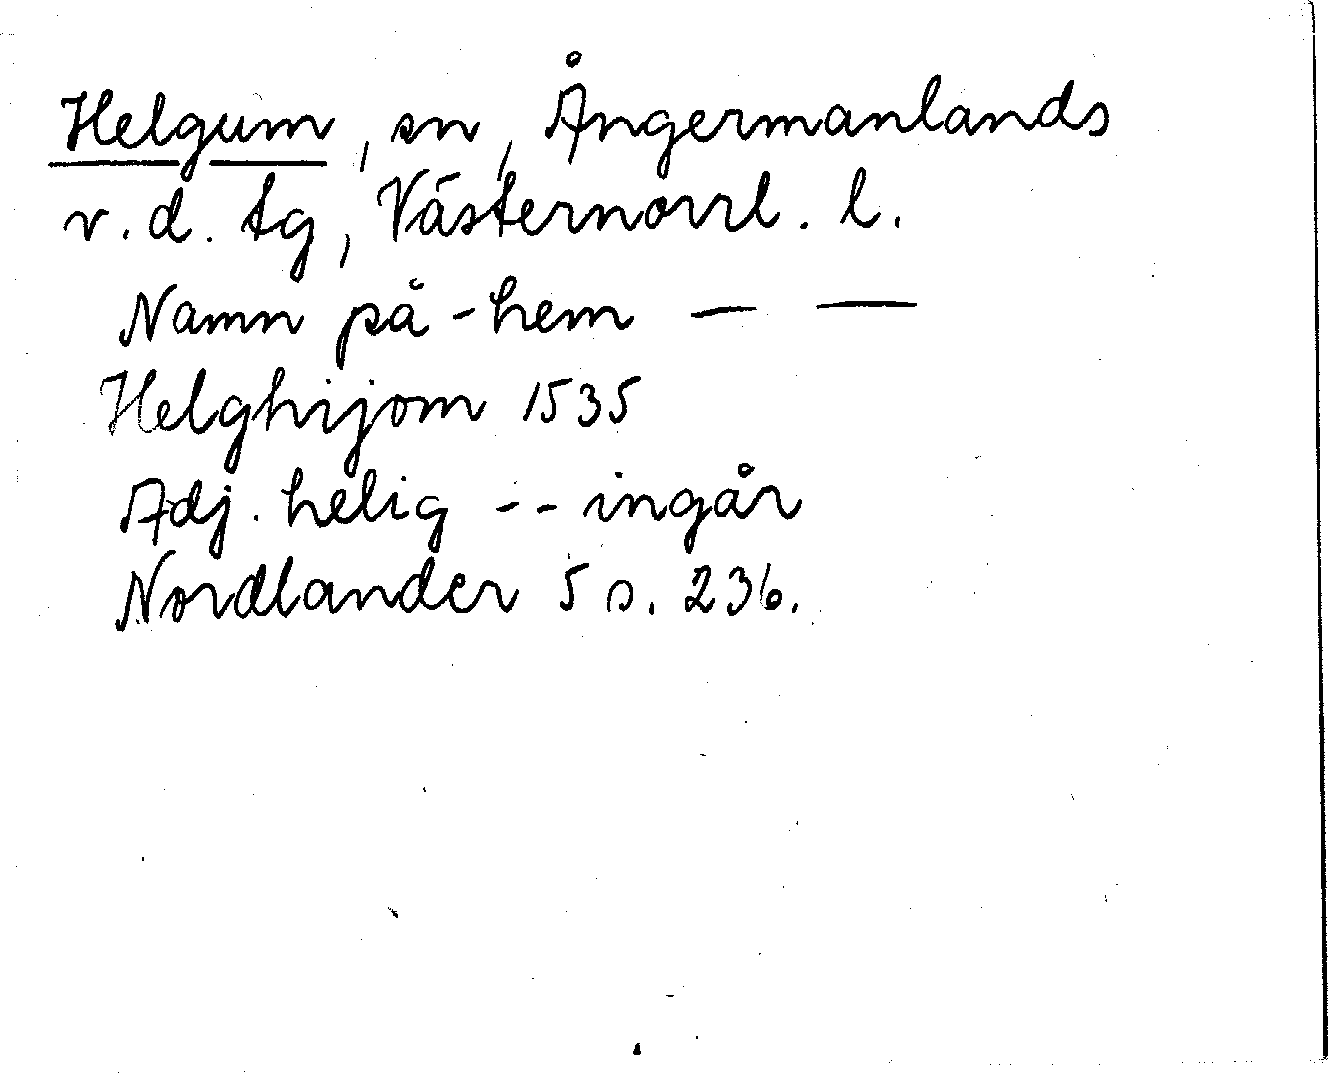 Helgum, sn, Ångermanlands
v. d. tg, Västernorrl. l.
Namn på -hem — —
Helghijom 1535
Adj. helig -- ingår
Nordlander 5 s. 236.